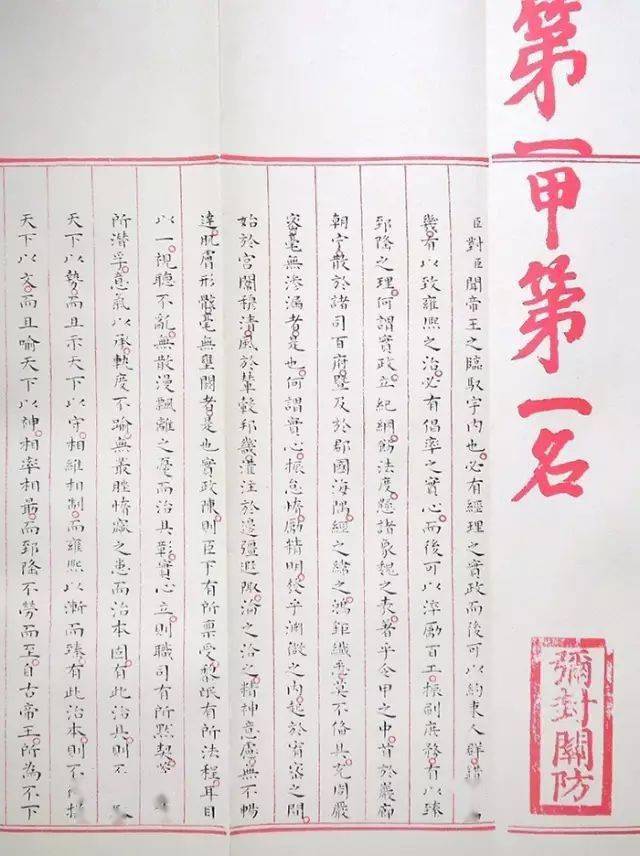 第一甲第一名
彌封關防
臣對臣聞帝王之臨馭宇內也必有經理之實政而後可以約束人群錯
幾有以致雍熙之治必有倡率之實心而後可以淬勵百工振刷庶務有以臻
郅隆之理何謂實政立紀綱飭法度懸諸象魏之表著乎令甲之中首於巖廊
朝宁散於諸司百府暨及於郡國海隅經之緯之鴻鉅纖悉莫不備具充周嚴
密毫無滲漏者是也何謂實心振怠惰勵精明發乎淵微之內起於宵寐之間
始於宮闈穆清風於輦轂邦畿灌注於邊疆遐陬淪之洽之精神意慮無不暢
達肌膚形骸毫無壅閼者是也實政陳則臣下有所稟受黎氓有所法程耳目
以一視聽不亂無散漫飄離之憂而治具彰實心立則職司有所默契
所潛孚意氣以承軌度不踰無叢脞惰窳之患而治本固有此治具則不
天下以勢而且示天下以守相維相制而雍熙以漸而臻有此治本則不
天下以文而且喻天下以神相率相勗而郅隆不勞而至自古帝王所為不下